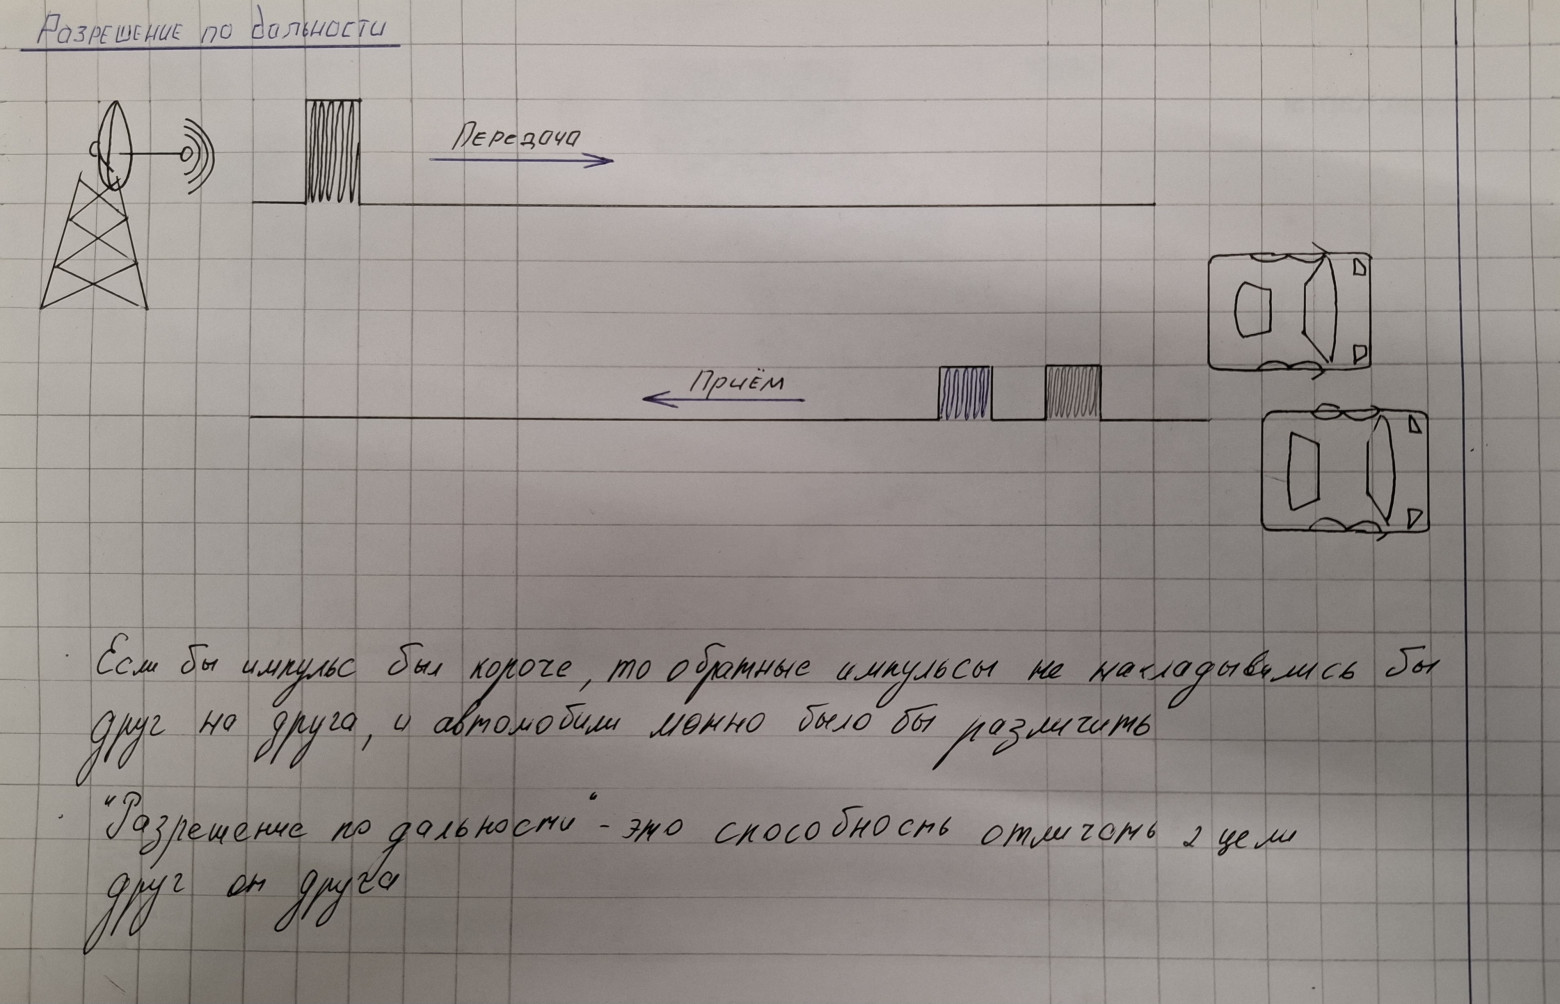 Разрешение по дальности
Передача
Приём
Если бы импульс был короче, то обратные импульсы не накладывались бы
друг на друга, и автомобили можно было бы различить
"Разрешение по дальности" - это способность отличать 2 цели
друг от друга